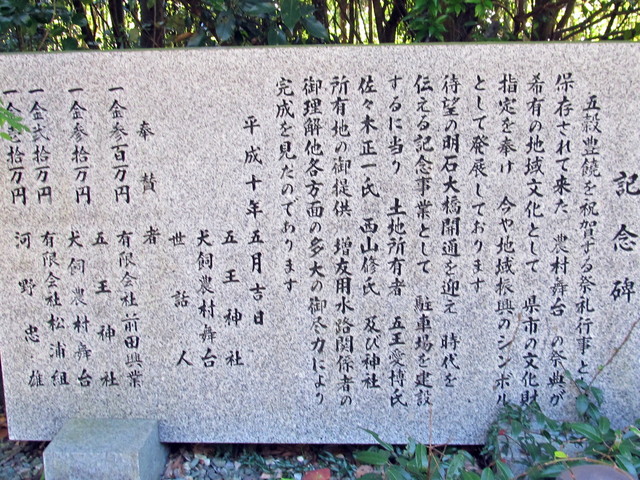 記念碑
五穀豊饒を祝賀する祭礼行事と
保存されて来た 農村舞台 の祭典が
希有の地域文化として 県市の文化財
指定を奉け 今や地域振興のシンボル
として発展しております
待望の明石大橋開通を迎え 時代を
伝える記念事業として 駐車場を建設
するに当り 土地所有者 五王愛博氏
佐々木正一氏 西山修氏 及び神社
所有地の御提供 増友用水路関係者の
御理解他各方面の多大の御尽力により
完成を見たのであります
平成十年五月吉日
五王神社
犬飼農村舞台
世話人
奉賛者
一金参百万円 有限会社前田興業
五王神社
一金参拾万円 犬飼農村舞台
一金弐拾万円 有限会社松浦組
一金壱拾万円 河野忠雄